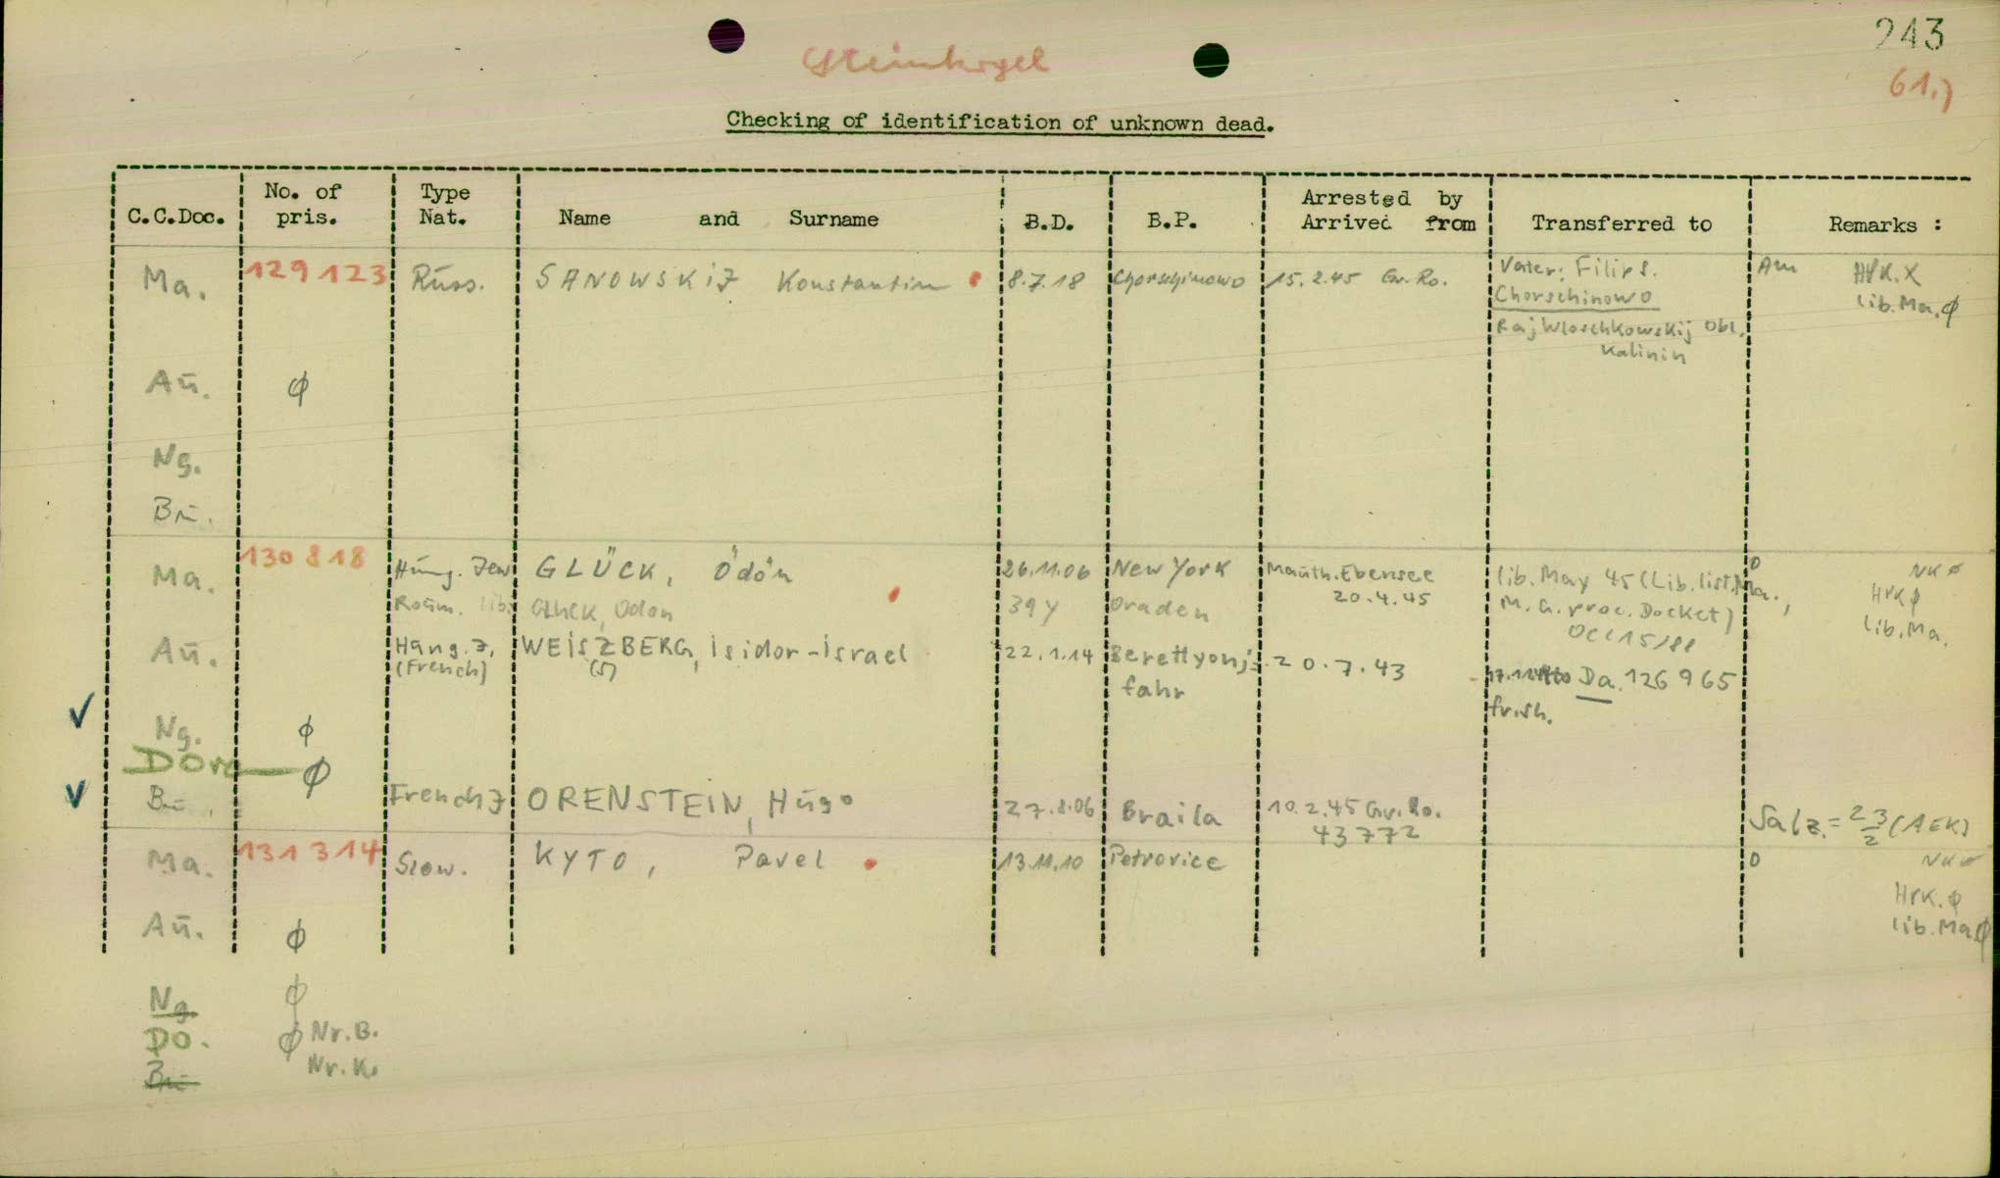 243
Steinkogel
61.)
Checking of identification of unknown dead.
C.C.Doc. No. of pris. Type Nat. Name and Surname B.D. B.P. Arrested by Arrived from Transferred to Remarks :
Ma. 129 123 Russ. SANOWSKIJ Konstantin 8.7.18 Chorschinowo 15.2.45 Gr. Ro. Vater: Filip S. Am HVK. X
Chorschinowo lib. Ma. ϕ
Raj Wloschkowskij Obl.
Kalinin
Aū. ϕ
Ng.
Bū.
Ma. 130 818 Hung. Jew GLÜCK, Ödön 26.11.06 New York Mauth. Ebensee lib. May 45 (Lib. list Ma., O NK ϕ
Roum. lib. Gluck, Odon 39 y Oraden 20.4.45 M. G. proc. Docket) HVK ϕ
OCC15/ lib. Ma.
Aū. Hung. J. WEISZBERG, Isidor-Israel 22.1.14 Berettyouj- 20.7.43 Da. 126 965
(French) (S) fahr frish.
Ng. ϕ
Dora ϕ
Bū. French J ORENSTEIN, Hugo 27.8.06 Braila 10.2.45 Gr. Ro. Salz. = 23/2 (AEK)
43772
Ma. 131 314 Slow. KYTO, Pavel 13.11.10 Petrovice O NK ϕ
HVK. ϕ
Aū. ϕ lib. Ma ϕ
Ng ϕ
DO. ϕ Nr. B.
Bū Nr. K.